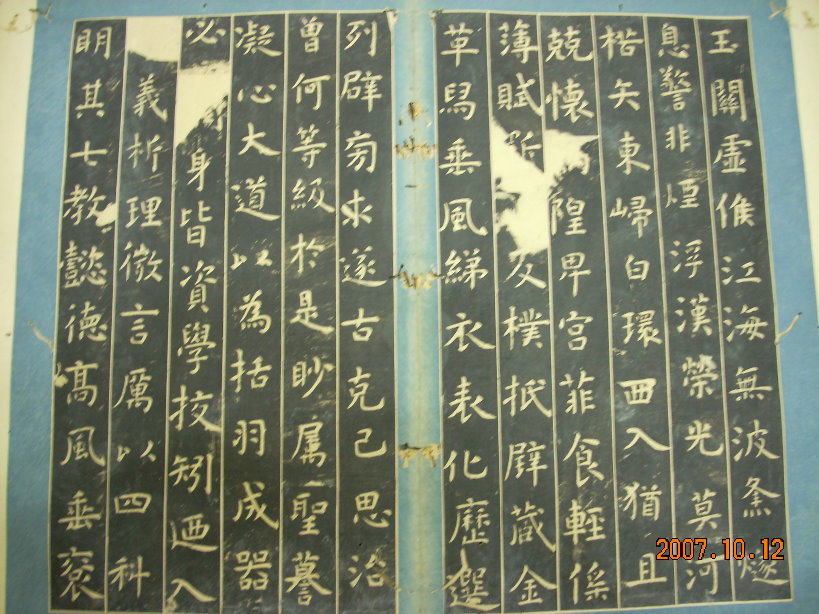 玉關虛候江海無波烽燧
息警非煙浮漢榮光莫河
楛矢東歸白環西入猶且
兢懷隍卑宮菲食輕徭
薄賦斲反樸抵璧藏金
革舄垂風綈衣表化歷選
列辟旁求遂古克己思治
曾何等級於是眇屬聖謩
凝心大道以為括羽成器
必身皆資學校矧迺入
義析理微言厲以四科
明其七教懿德高風垂褒
2007.10.12